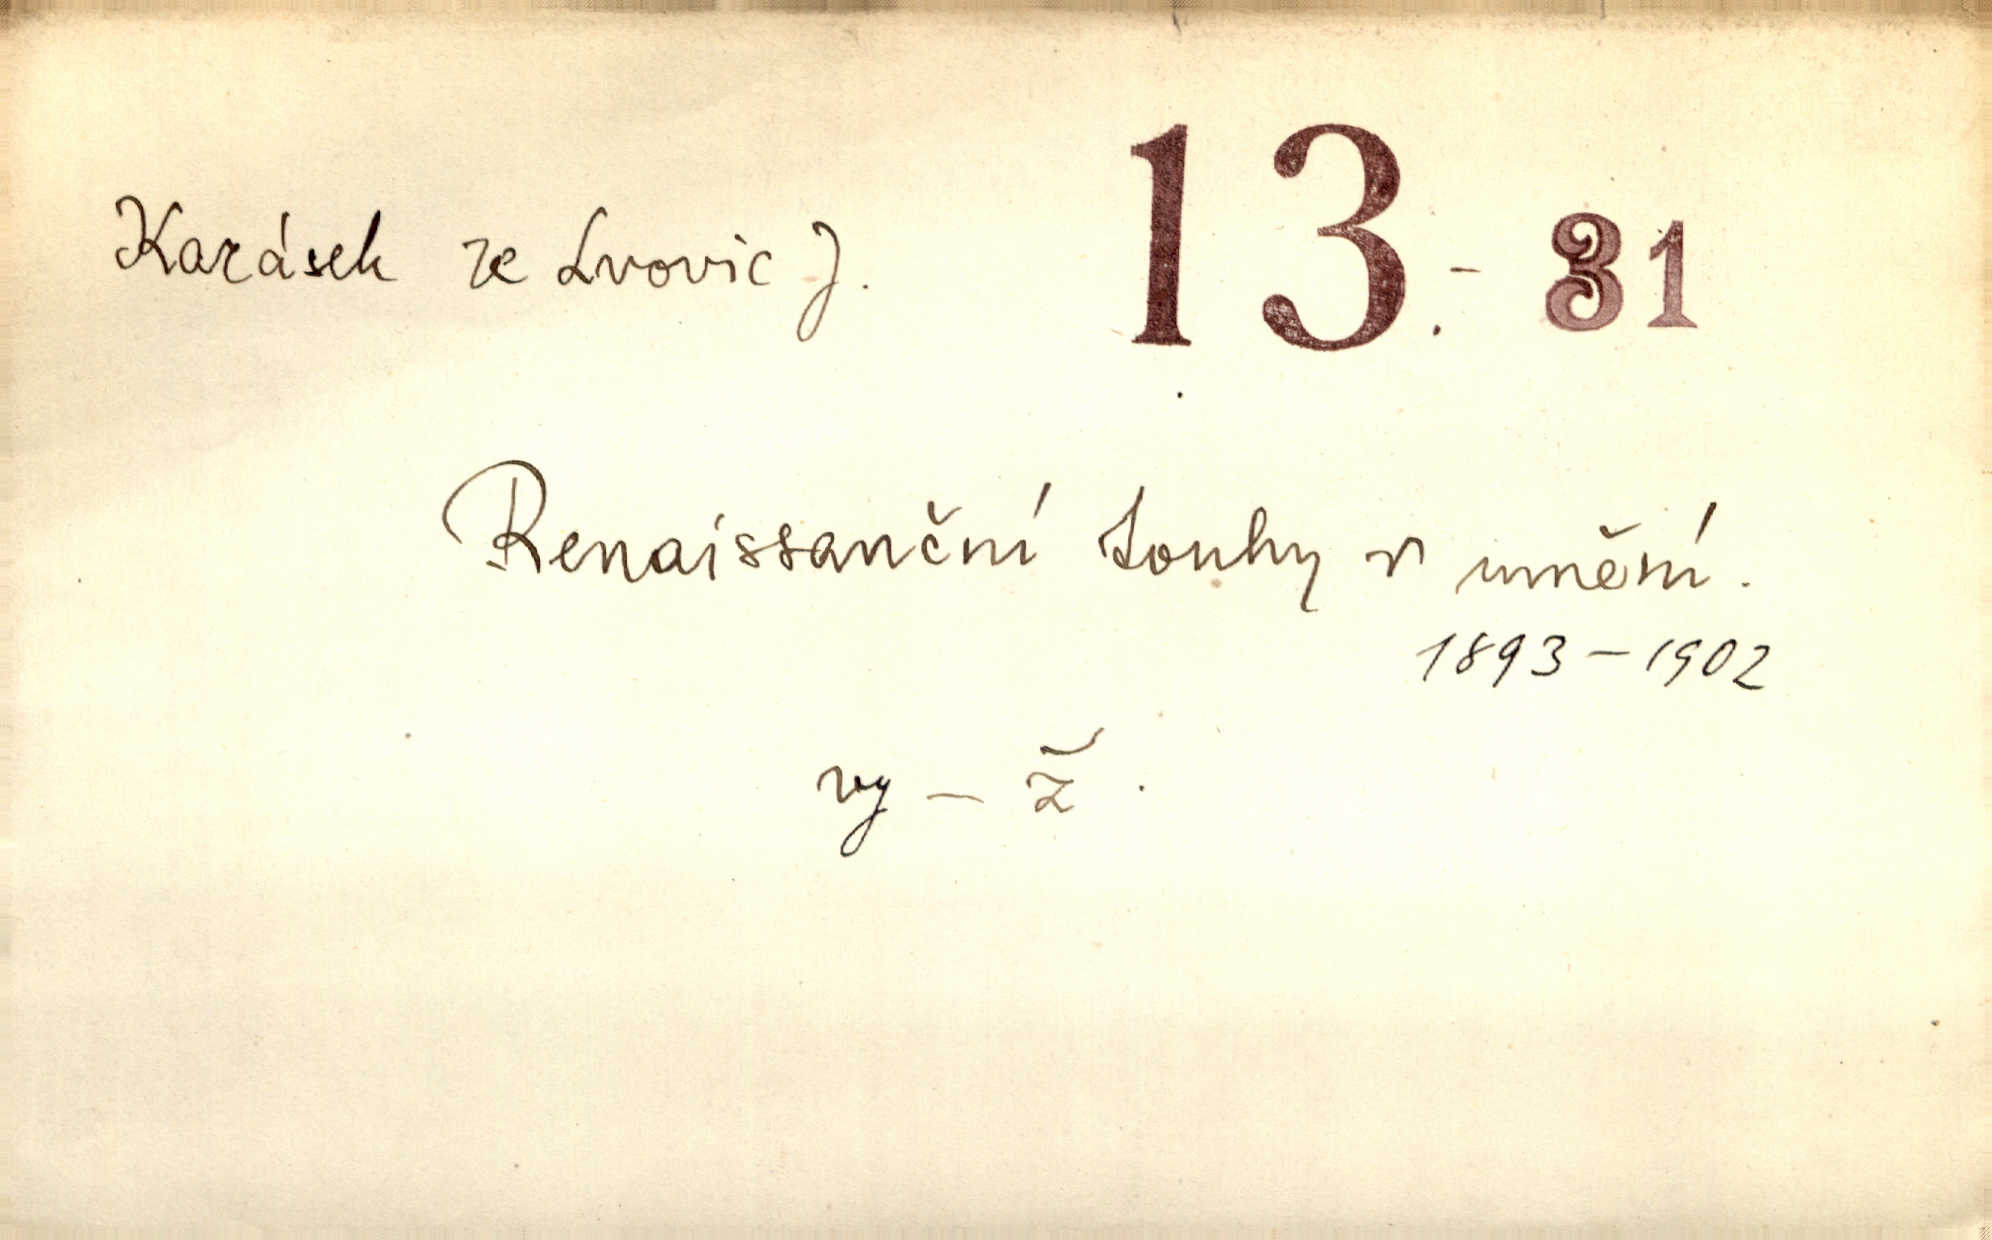 Karásek ze Lvovic J. 13.- 31
Renaissanční touhy v umění.
1893-1902
vy - ž.